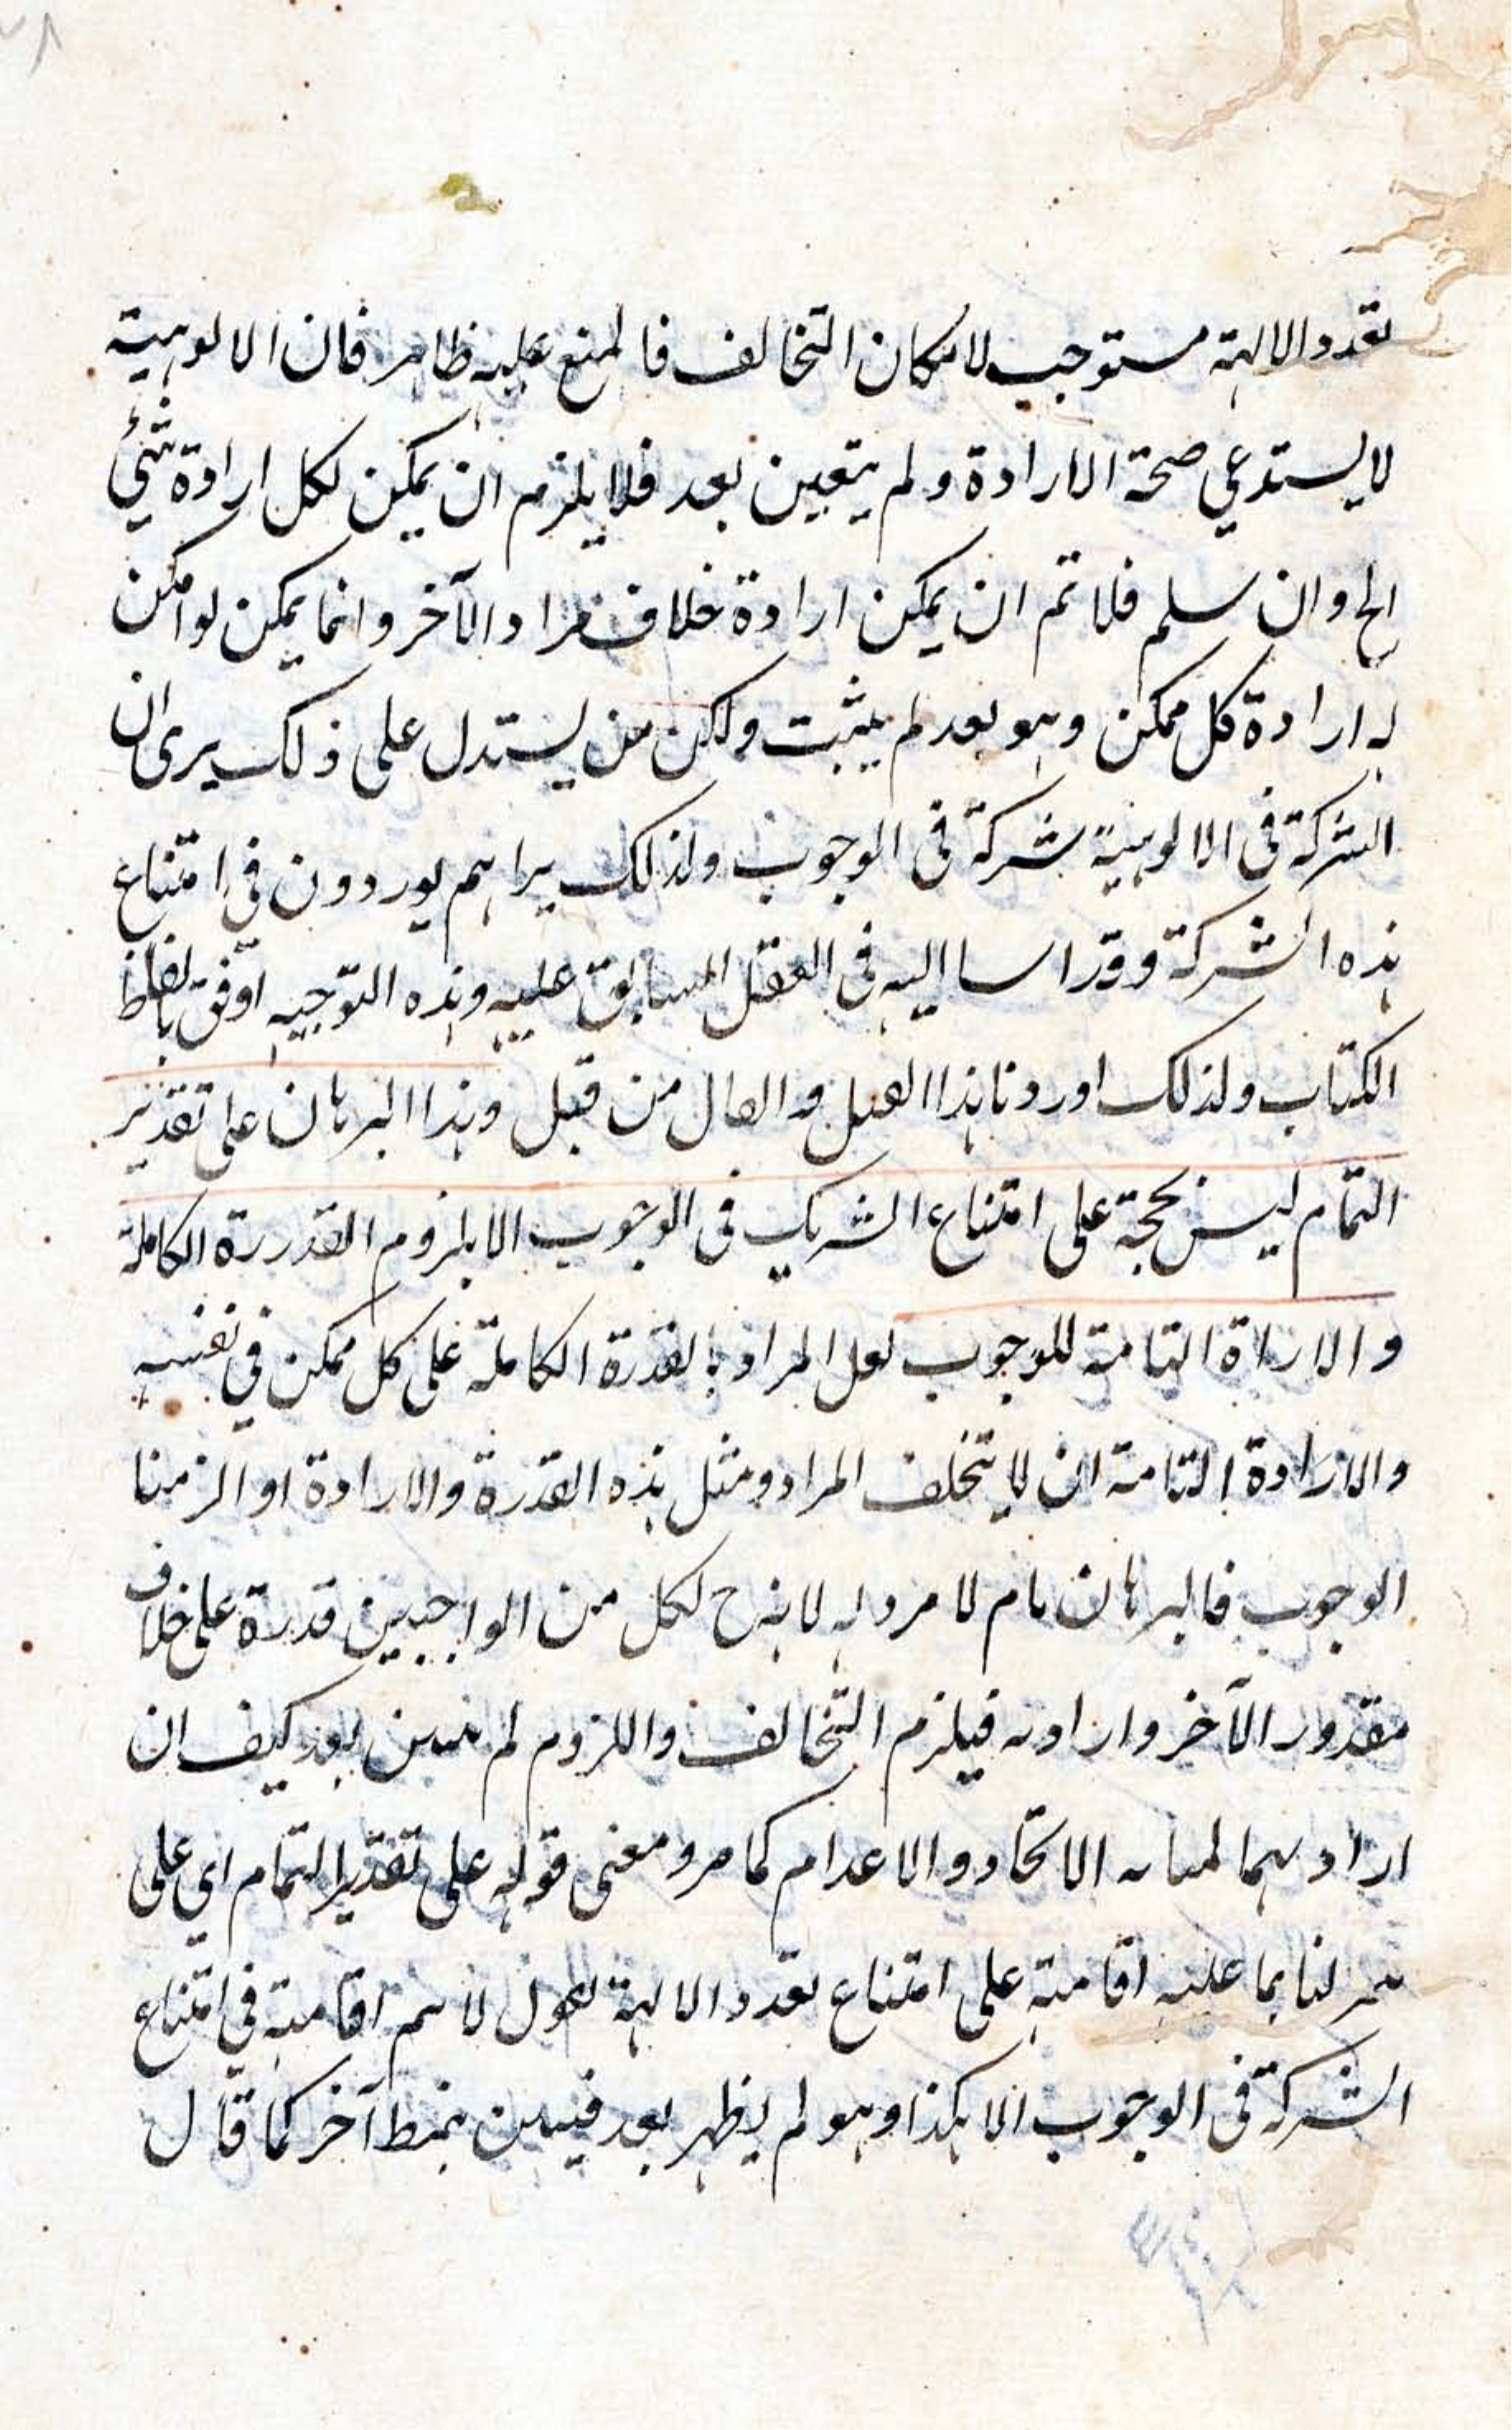 تعدد الالهة مستوجب لامكان التخالف فالمنع عليه ظاهر فان الالوهية
لا يستدعي صحة الارادة ولم يتعين بعد فلا يلزم ان يمكن لكل ارادة شئ
الخ وان سلم فلا تم ان يمكن ارادة خلاف مراد الآخر وانما يمكن لو امكن
له ارادة كل ممكن وهو بعد لم يثبت ولكن من يستدل على ذلك يرى ان
الشركة في الالوهية شركة في الوجوب ولذلك يراهم يوردون في امتناع
هذه الشركة وقد اليه في العقل السابق عليه وهذه التوجيه اوفق بالفاظ
الكتاب ولذلك اوردنا هذا من قبل وهذا البرهان على تقدير
التمام ليس بحجة على امتناع الشريك في الوجوب الا بلزوم القدرة الكاملة
و الاراة التامة للوجوب لعل المراد بالقدرة الكاملة على كل ممكن في نفسه
والارادة التامة ان لا يتخلف المراد ومثل هذه القدرة والارادة او الزمنا
الوجوب فالبرهان تام لا مرد له لانه ح لكل من الواجبين قدرة على خلاف
مقدور الآخر وارادته فيلزم التخالف واللزوم لم يتبين بعد كيف ان
الاتحاد والاعدام كما مر ومعنى قوله على تقدير التمام اي على
لنا بما عليه اقامية على امتناع تعدد الالهة لا اقامية في امتناع
الشركة في الوجوب الا هكذا وهو لم يظهر بعد بنمط آخر كما قال